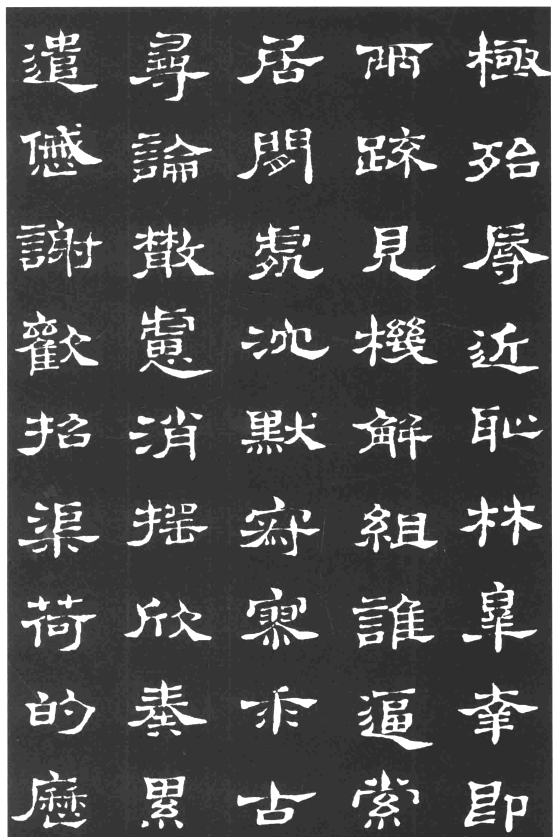 極殆辱近恥林皋幸即
兩疏見機解組誰逼索
居閒處沈默寂寥求古
尋論散慮消搖欣奏累
遣慼謝歡招渠荷的歷